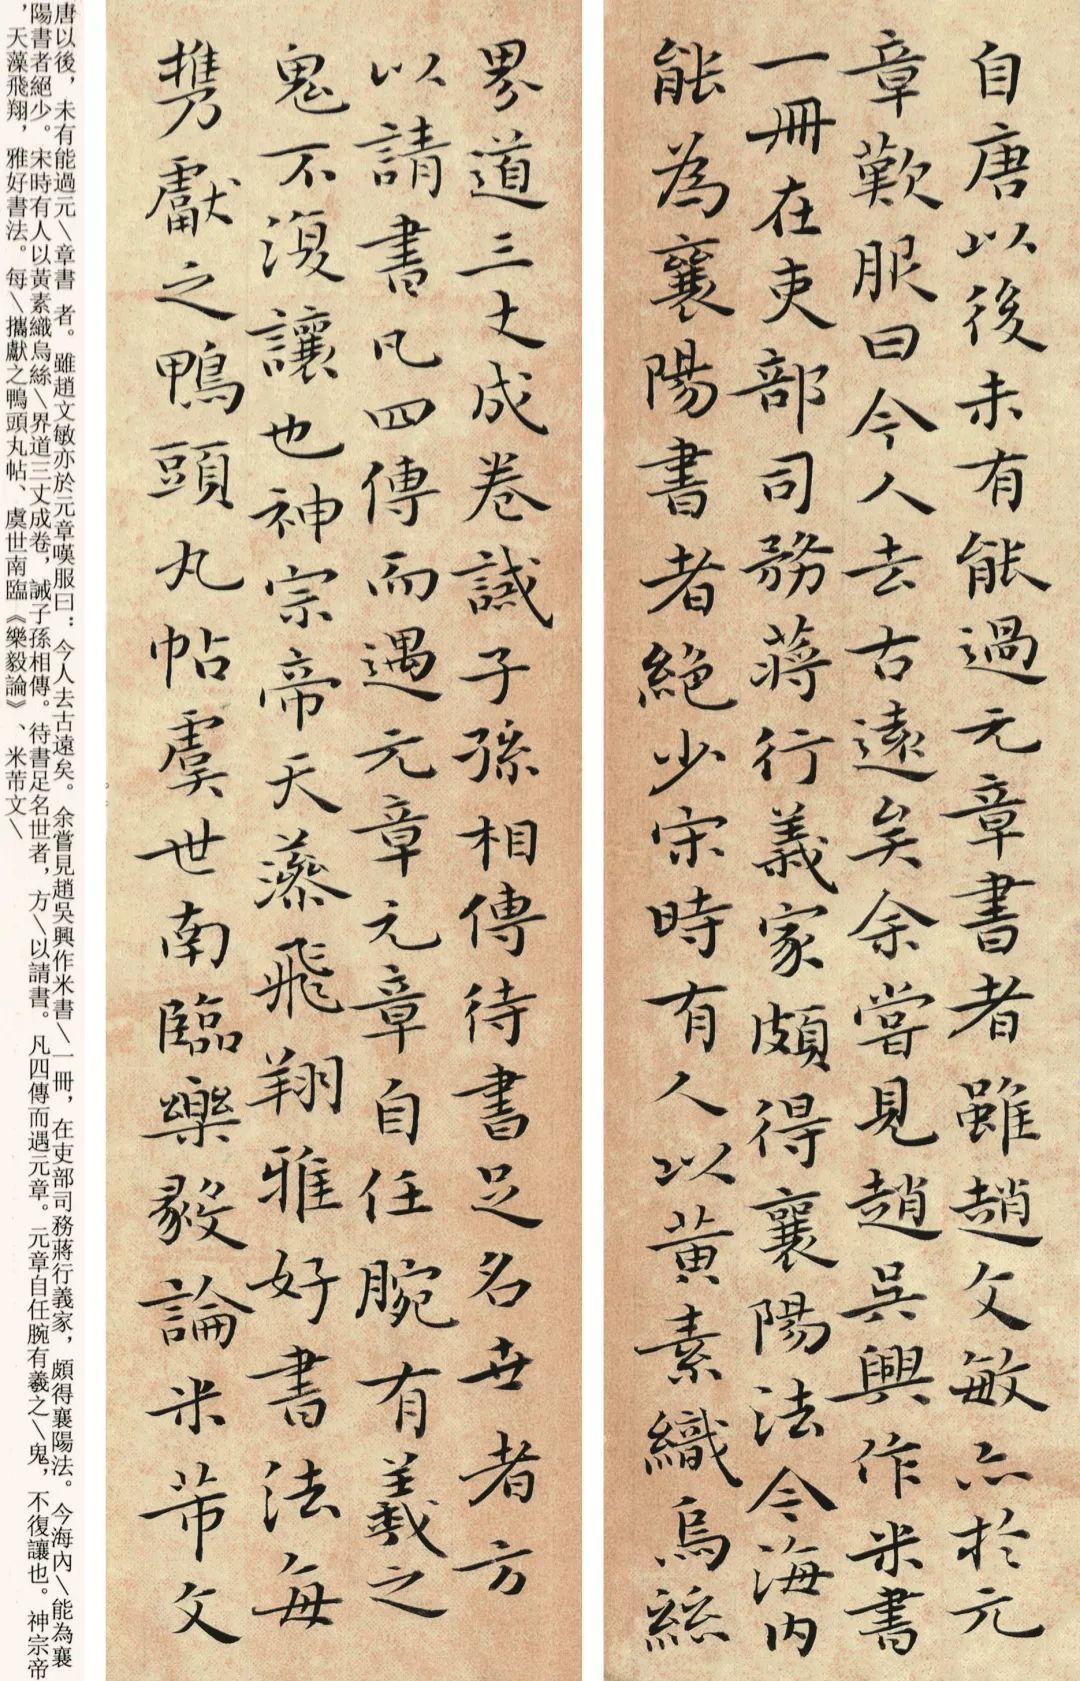 自唐以後未有能過元章書者雖趙文敏亦於元
章歎服曰今人去古遠矣余嘗見趙吳興作米書
一冊在吏部司務蔣行義家頗得襄陽法今海內
能為襄陽書者絕少宋時有人以黃素織烏絲
界道三丈成卷誡子孫相傳待書足名世者方
以請書凡四傳而遇元章元章自任腕有羲之
鬼不復讓也神宗帝天藻飛翔雅好書法每
携獻之鴨頭丸帖虞世南臨樂毅論米芾文
唐以後，未有能過元\章書 者。雖趙文敏亦於元章嘆服曰：今人去古遠矣。余嘗見趙吳興作米書\一冊，在吏部司務蔣行義家，頗得襄陽法。今海內\能為襄
陽書者絕少。宋時有人以黃素織烏絲\界道三丈成卷，誡子孫相傳。待書足名世者，方\以請書。凡四傳而遇元章。元章自任腕有羲之\鬼，不復讓也。神宗帝
，天藻飛翔，雅好書法。每\攜獻之鴨頭丸帖、虞世南臨《樂毅論》、米芾文\